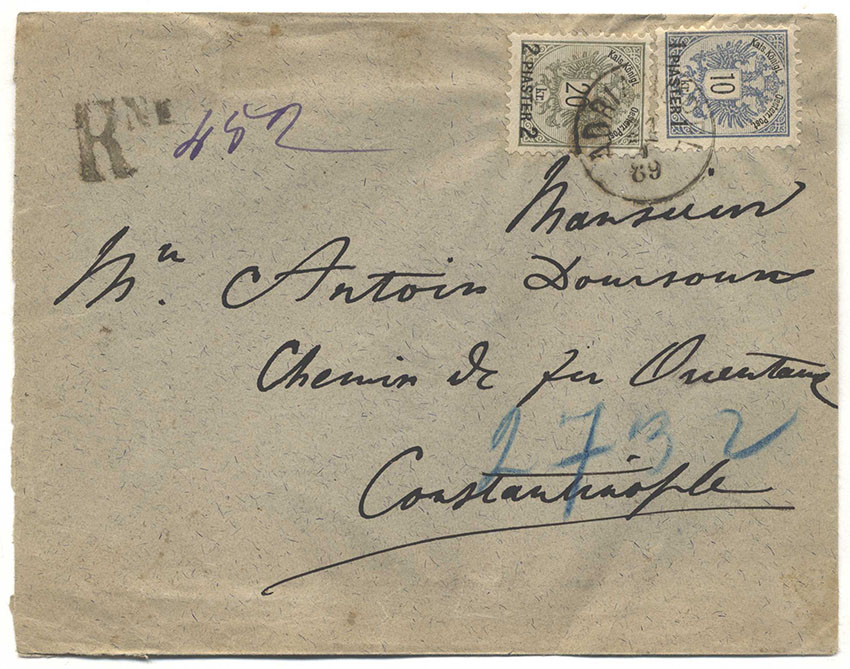 R No 452
2 PIASTER 2
Kais. Königl. Oesterr. Post
20 kr.
1 PIASTER 1
Kais. Königl. Oesterr. Post
10 kr.
ADRI
Monsieur
Mr. Antoin Doursoun
Chemin de fer Orientaux
2732
Constantinople